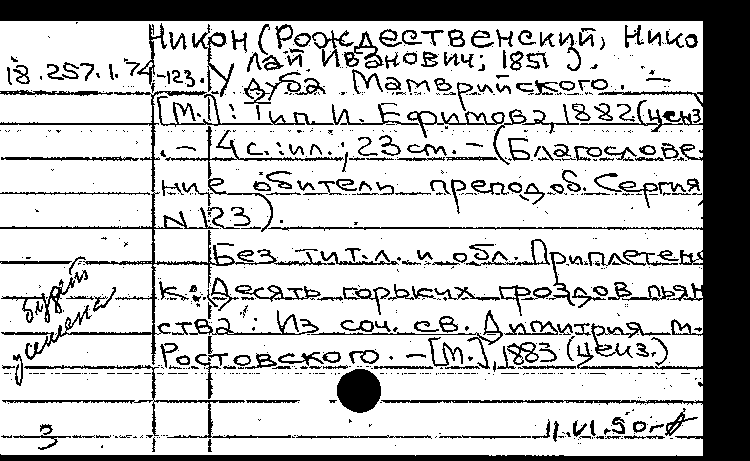 Никон (Рождественский, Нико
лай Иванович; 1851 ).
18.257.1.74-123. У дуба Мамврийского. —
[М.]: Тип. И. Ефимова, 1882 (ценз)
. — 4 с.: ил.; 23 см. — (Благослове-
ние обители преподоб. Сергия
N 123).
Без тит. л. и обл. Приплетено
к: Десять горьких гроздов пьян
ства: Из соч. св. Димитрия м.
Ростовского. — [М.], 1883 (ценз.)
будет
усилена
3
11.VI.90